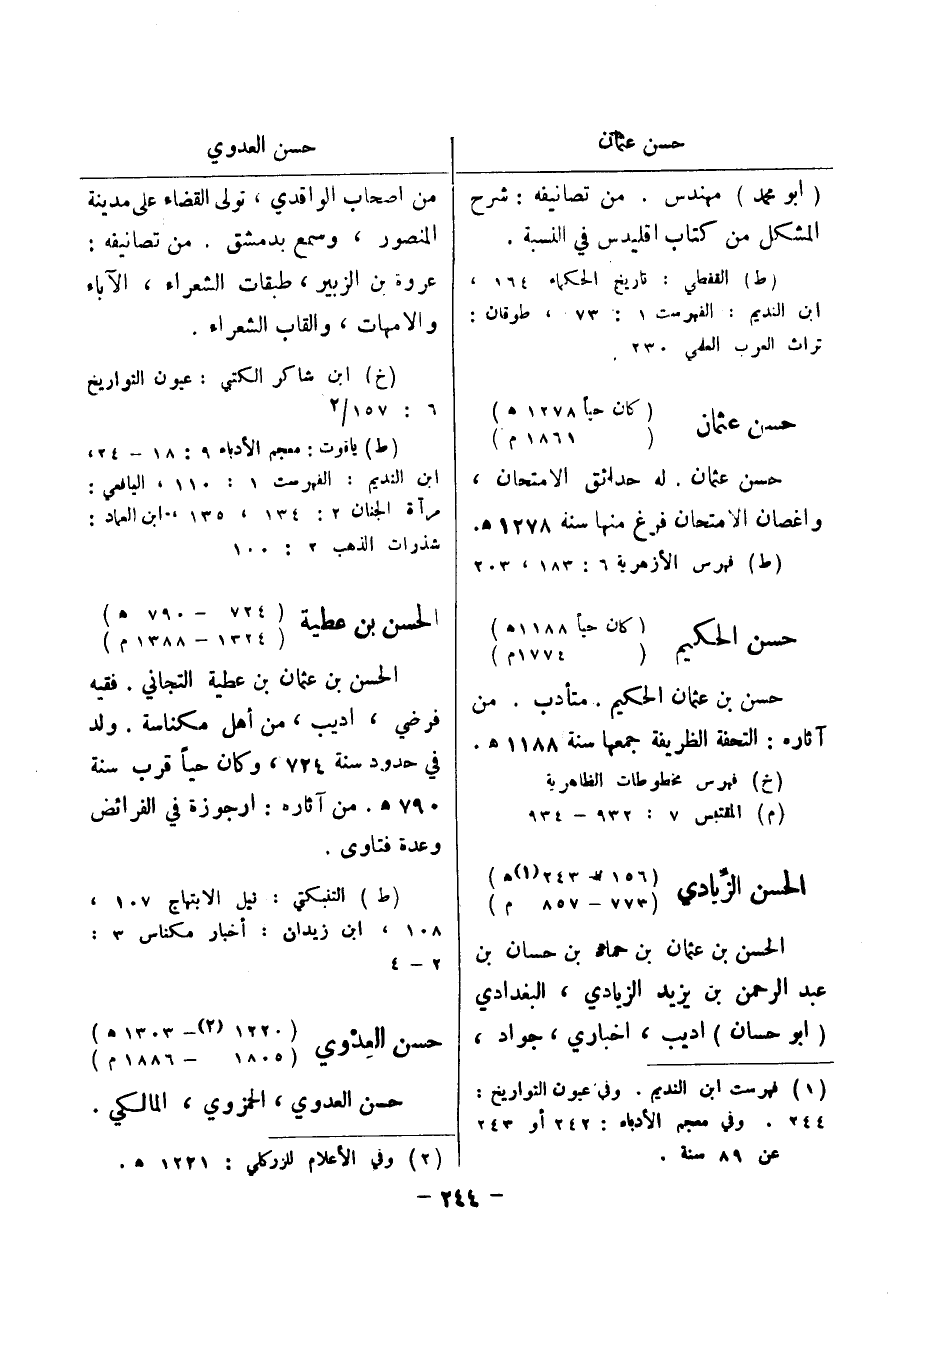 حسن عثمان
( ابو محمد ) مهندس . من تصانيفه : شرح
المشكل من كتاب اقليدس في النسبة .
(ط) القفطي : تاريخ الحكماء ١٦٤ ،
ابن النديم : الفهرست ١ : ٧٣ ، طوقان :
تراث العرب العلمي ٢٣٠ .
حسن عثمان
( كان حياً ١٢٧٨ ه )
( ١٨٦١ م )
حسن عثمان . له حدائق الامتحان ،
واغصان الامتحان فرغ منها سنة ١٢٧٨ ه.
(ط) فهرس الأزهرية ٦ : ١٨٣ ، ٢٠٣
حسن الحكيم
( كان حياً ١١٨٨ ه )
( ١٧٧٤ م )
حسن بن عثمان الحكيم . متأدب . من
آثاره : التحفة الظريفة جمعها سنة ١١٨٨ ه .
(خ) فهرس مخطوطات الظاهرية
(م) المقتبس ٧ : ٩٣٢ – ٩٣٤
الحسن الزّيادي
( ١٥٦ – ٢٤٣ (١) ه )
( ٧٧٣ – ٨٥٧ م )
الحسن بن عثمان بن حماد بن حسان بن
عبد الرحمن بن يزيد الزيادي ، البغدادي
( ابو حسان ) اديب ، اخباري ، جواد ،
(١) فهرست ابن النديم . وفي عيون التواريخ :
٢٤٤ . وفي معجم الأدباء : ٢٤٢ أو ٢٤٣
عن ٨٩ سنة .
حسن العدوي
من اصحاب الواقدي ، تولى القضاء على مدينة
المنصور ، وسمع بدمشق . من تصانيفه :
عروة بن الزبير ، طبقات الشعراء ، الآباء
والامهات ، والقاب الشعراء .
(خ) ابن شاكر الكتبي : عيون التواريخ
٦ : ١٥٧/٢
(ط) ياقوت : معجم الأدباء ٩ : ١٨ – ٢٤،
ابن النديم : الفهرست ١ : ١١٠ ، اليافعي :
مرآة الجنان ٢ : ١٣٤ ، ١٣٥ ، ابن العماد :
شذرات الذهب ٢ : ١٠٠
الحسن بن عطية
( ٧٢٤ – ٧٩٠ ه )
( ١٣٢٤ – ١٣٨٨ م )
الحسن بن عثمان بن عطية التجاني . فقيه
فرضي ، اديب ، من أهل مكناسة . ولد
في حدود سنة ٧٢٤ ، وكان حياً قرب سنة
٧٩٠ ه . من آثاره : ارجوزة في الفرائض
وعدة فتاوى .
(ط) التنبكتي : نيل الابتهاج ١٠٧ ،
١٠٨ ، ابن زيدان : أخبار مكناس ٣ :
٢ – ٤
حسن العِدْوي
( ١٢٢٠ (٢) – ١٣٠٣ ه )
( ١٨٠٥ – ١٨٨٦ م )
حسن العدوي ، الحمزوي ، المالكي .
(٢) وفي الأعلام للزركلي : ١٢٢١ ه .
– ٢٤٤ –